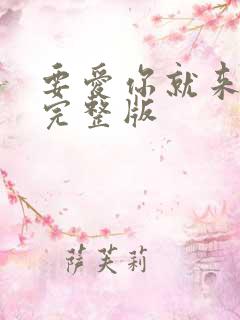 要愛你就来
完整版
萨芙莉